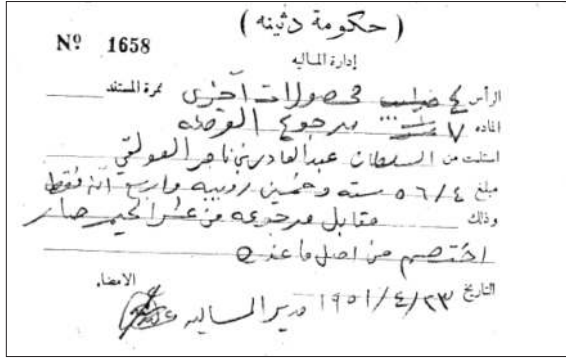 ( حكومة دثينه )
Nº 1658
إدارة المالية
الرأس ٤ محصولات أخرى نمرة المستند
الماده ٧ مرجوع القرضه
استلمت من السلطان عبدالقادر بن ناصر العولقي
مبلغ ٥٦/٤ سته وخمسين روبيه واربع آنه فقط
وذلك مقابل مرجوعه من
اختصم من اصل ما عنده
الامضاء
التاريخ ٢٣/٤/١٩٥١ مدير الماليه